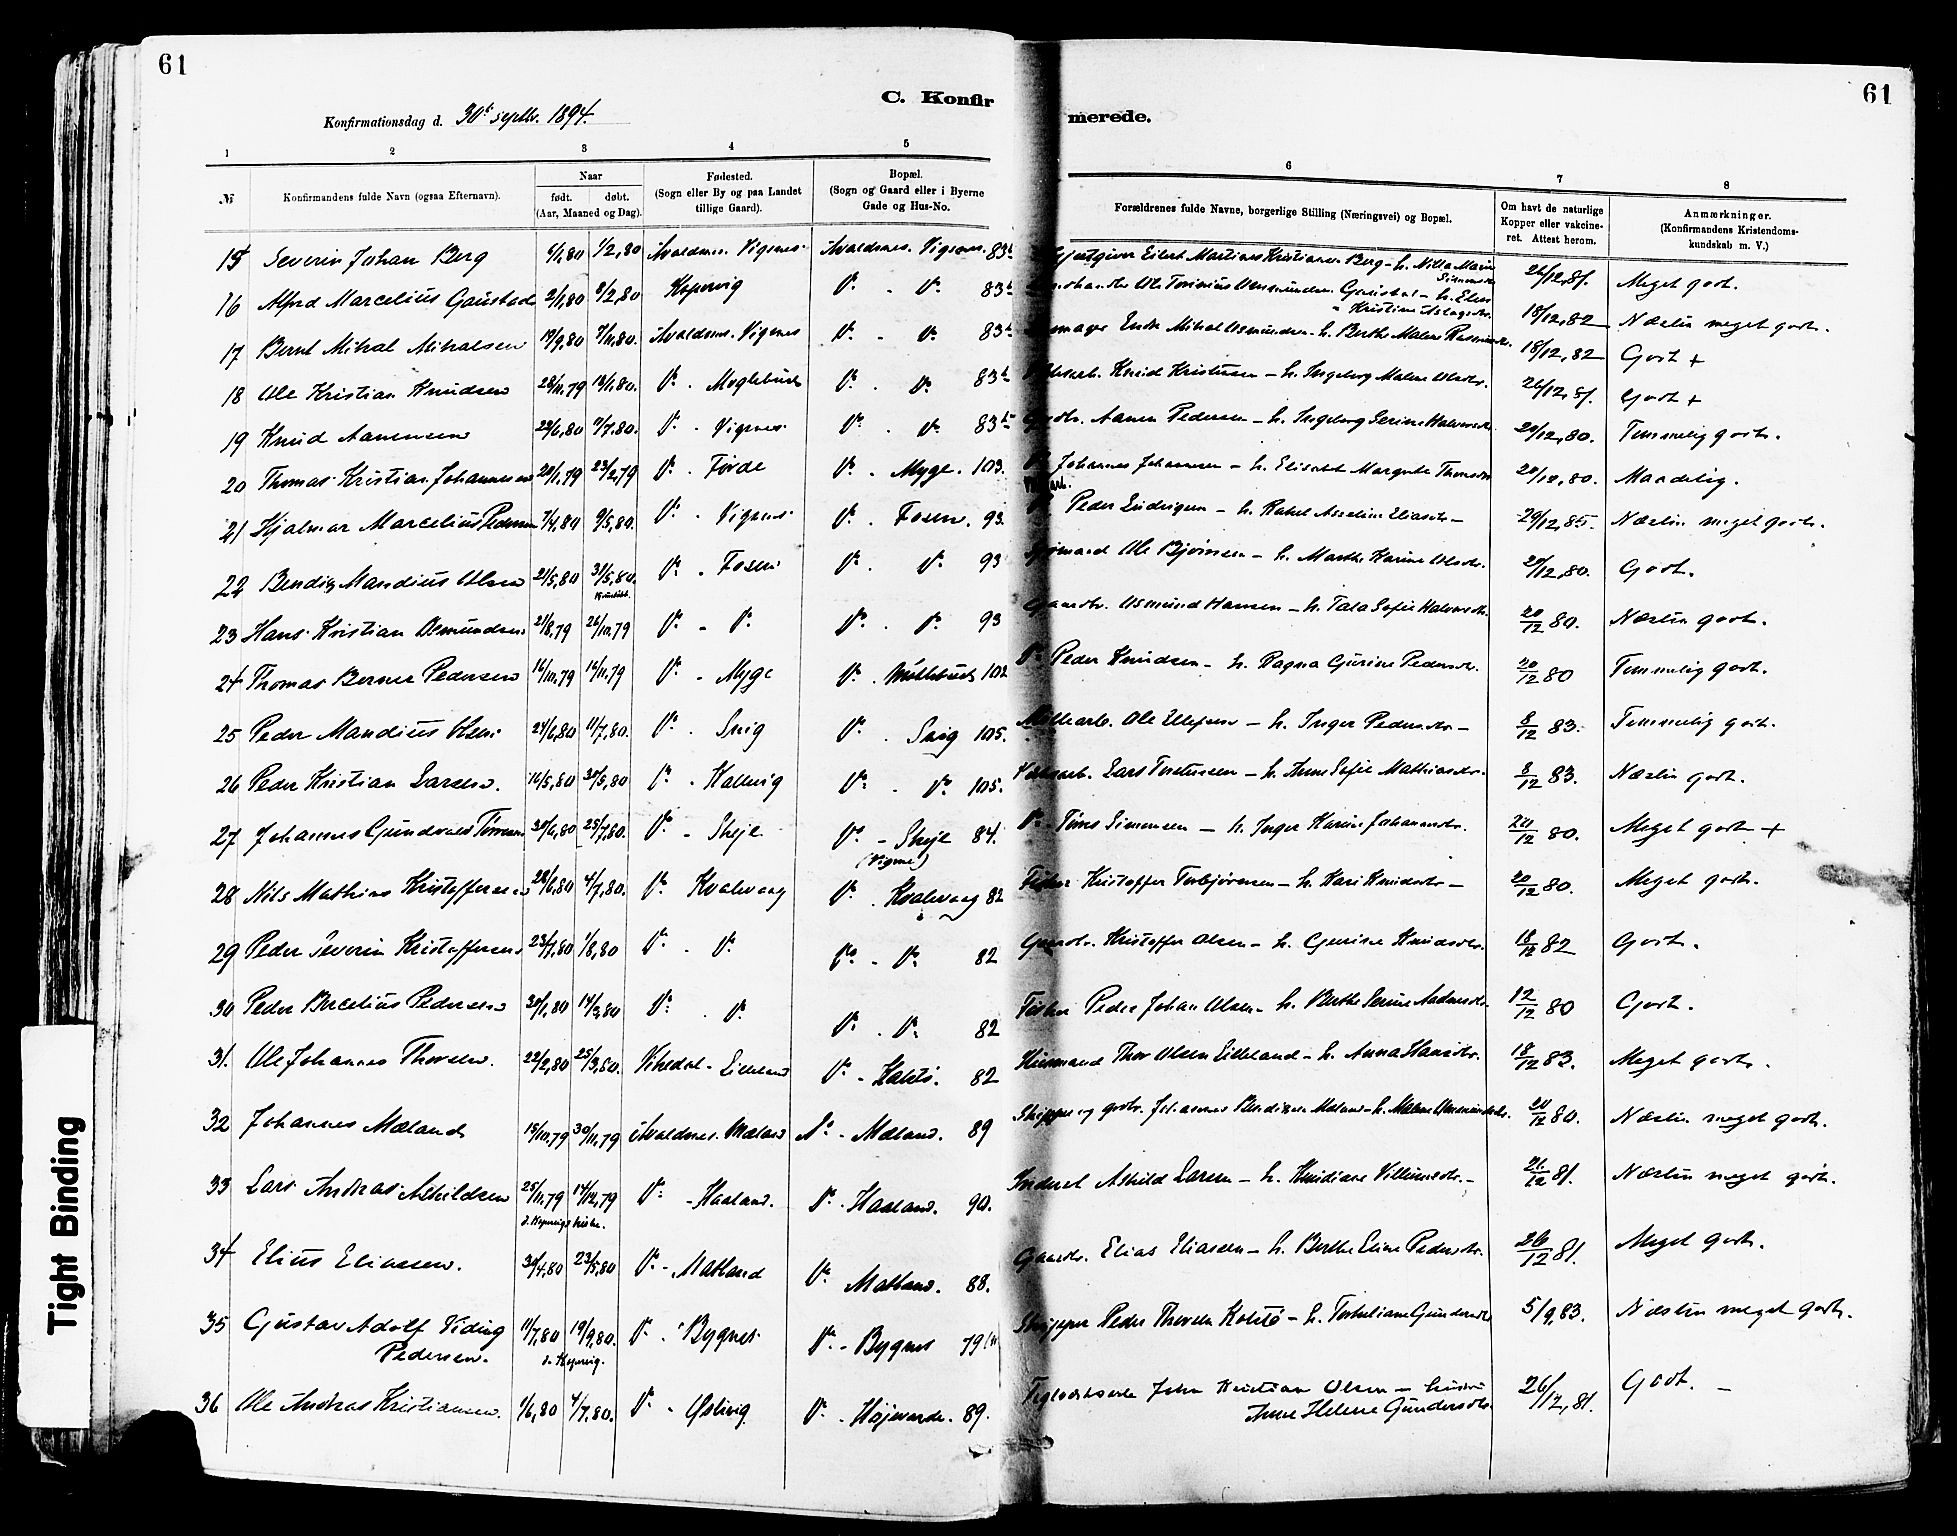 61
61
C. Konfir
merede.
Konfirmationsdag d. 30te septbr. 1894.
1 2 3 4 5 6 7 8
№ Konfirmandens fulde Navn (ogsaa Efternavn).
Naar
født. døbt.
(Aar, Maaned og Dag).
Fødested.
(Sogn eller By og paa Landet
tillige Gaard).
Bopæl.
(Sogn og Gaard eller i Byerne
Gade og Hus-No.
Forældrenes fulde Navne, borgerlige Stilling (Næringsvei) og Bopæl.
Om havt de naturlige
Kopper eller vakcine-
ret. Attest herom.
Anmærkninger.
(Konfirmandens Kristendoms-
kundskab m. V.)
15 Severin Johan Berg 6/1,80 1/2,80 Avaldsnes. Vigsnes. Avaldsnes. Vigsnes. 83b Eilert Martinus Kristiansen Berg - h. Marie 26/12,81. Meget godt.
16 Alfred Marcelius Gaustad 2/1,80 8/2,80 Kopervig Do. - Do. 83b Ole Gaustad - h. Kristine 18/12,82 Næsten meget godt.
17 Bernt Mikal Mikalsen 19/9,80 7/11,80. Avaldsnes. Vigsnes Do. - Do. 83b Endre Mikal Osmundsen - h. Berthe Malene 18/12,82 Godt +
18 Ole Kristian Knudsen 28/11,79 18/1,80. Do. Do. - Do. 83b Knud Kristensen - h. Ingeborg Malene Olsdtr. 26/12,81. Godt +
19 Knud Aanensen 29/6,80 Do. - Vigsnes. Do. - Do. 83b Aanen Pedersen - h. Ingeborg Serine 20/12,80. Temmelig godt.
20 Thomas Kristian Johannesen 20/1,79 23/2,79 Do. - Førde Do. - Myge. 103. Johannes Johannesen - h. Elisabet Margrete Thomsdtr 20/12,80. Maadelig.
21 Hjalmar Marcelius Pedersen 7/4,80 9/5,80. Do. - Vigsnes. Do. - Fosen. 93. Peder Ludvigsen - h. Rakel Asseline Eliasdtr - 29/12,85. Næsten meget godt.
22 Bendix Mandius Olsen 21/5,80 31/5,80. Do. - Fosen. Do. - Do. 93 Ole Bjørnsen - h. Marthe Karine Olsdtr. 20/12,80. Godt.
23 Hans Kristian Osmundsen 21/8,79 26/10,79 Do. - Do. Do. - Do. 93 Gaardbr. Osmund Hansen - h. Tala Sofie 20/12 80. Næsten godt.
24 Thomas Berner Pedersen 16/10,79 16/11,79 Do. - Myge Do. 102 Do. Peder Knudsen - h. Ragna Gurine Pedersdtr. 20/12 80 Temmelig godt.
25 Peder Mandius Olsen 24/6,80 11/7,80. Do. - Snig Do. - Snig 105. Ole Ellefsen - h. Inger Pedersdtr - 8/12 83. Temmelig godt.
26 Peder Kristian Larsen. 16/5,80 30/5,80 Do. - Kallevig Do. - Do. 105. Lars Torstensen - h. Anne Sofie Mathiasdtr. 8/12 83. Næsten godt.
27 Johannes Gundvald Tønnesen 30/6,80 25/7,80. Do. - Skeje Do. - Skeje 84. Do. Tønnes Simonsen - h. Inger Karine Johannesdtr. 20/12 80. Meget godt +
(Vigsnes)
28 Nils Mathias Kristoffersen 28/6,80 4/7,80. Do. Kvalevaag Do. Kvalevaag 82 Fisker Kristoffer Torbjørnsen - h. Kari Knudsdtr - 20/12 80. Meget godt.
29 Peder Severin Kristoffersen 23/7,80 1/8,80 Do. - Do. Do. - Do. 82 Gaardbr. Kristoffer Olsen - h. Gurine Knudsdtr. 18/12 82 Godt.
30 Peder Bercelius Pedersen 30/1,80 14/3,80 Do. - Do. Do. - Do. 82 Fisker Peder Johan Olsen - h. Berthe Serine Andersdtr. 12/12 80 Godt.
31. Ole Johannes Thorsen. 22/2,80 25/3,80. Vikedal - Lilleland Do. - Kolstø. 82 Husmand Thor Olsen Lilleland - h. Anna Hansdtr. 18/12 83. Meget godt.
32 Johannes Mæland 15/10,79 30/11,79 Avaldsnes. Mæland Do. - Mæland. 89 Skipper og gbr. Johannes Bendixen Mæland - h. Malene 20/12 80. Næsten meget godt.
33 Lars Andreas Askildsen 25/11,79 14/12,79 Do. - Haaland. Do. - Haaland. 90. Inderst Askild Larsen - h. Knudiane Villumsdtr. - 26/12 81. Næsten meget godt.
i Kopervigs kirke.
34 Elius Eliassen. 30/4,80 23/5,80 Do. - Matland Do. Matland. 88. Gaardbr. Elias Eliassen - h. Berthe Eline Pedersdtr. 26/12 81. Meget godt.
35 Gustav Adolf Viding 11/7,80 19/9,80. Do. - Bygnes. Do. - Bygnes 79 Skipper Peder Thorsen Kolstø - h. Torkeliane Gundersdtr 5/9,83. Næsten meget godt.
Pedersen. i Kopervig.
36 Ole Andreas Kristiansen. 1/6,80 4/7,80. Do. - Østvig Do. - Højevarde. 89. John Kristian Olsen - hustru 26/12,81. Godt. -
Anne Helene Gundersdtr.
Tight Binding